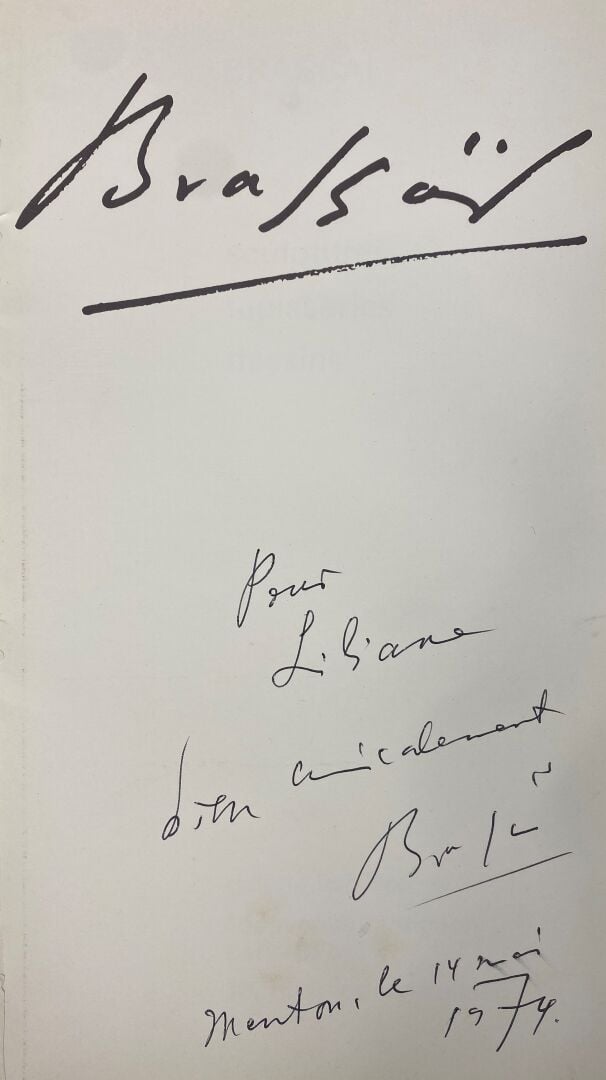 Brassaï
Pour
Liliane
bien amicalement
Brassaï
Menton, le 14 mai
1974.